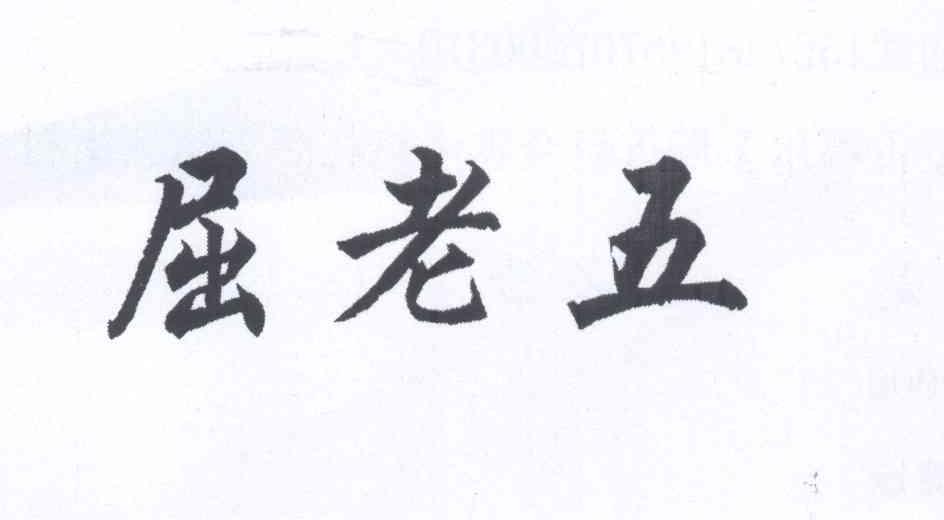 屈老五